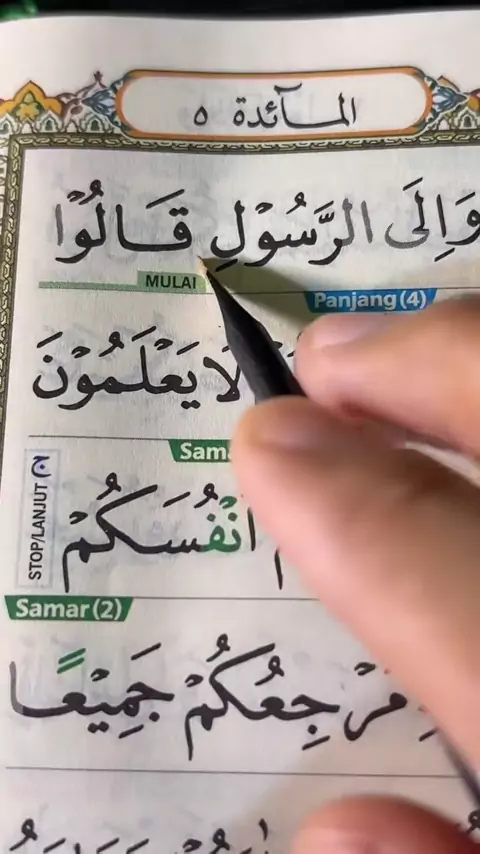 المائدة ٥
وَاِلَى الرَّسُوْلِ قَالُوْا
MULAI
Panjang (4)
لَا يَعْلَمُوْنَ
STOP/LANJUT
اَنْفُسَكُمْ
Samar (2)
مَرْجِعُكُمْ جَمِيْعًا